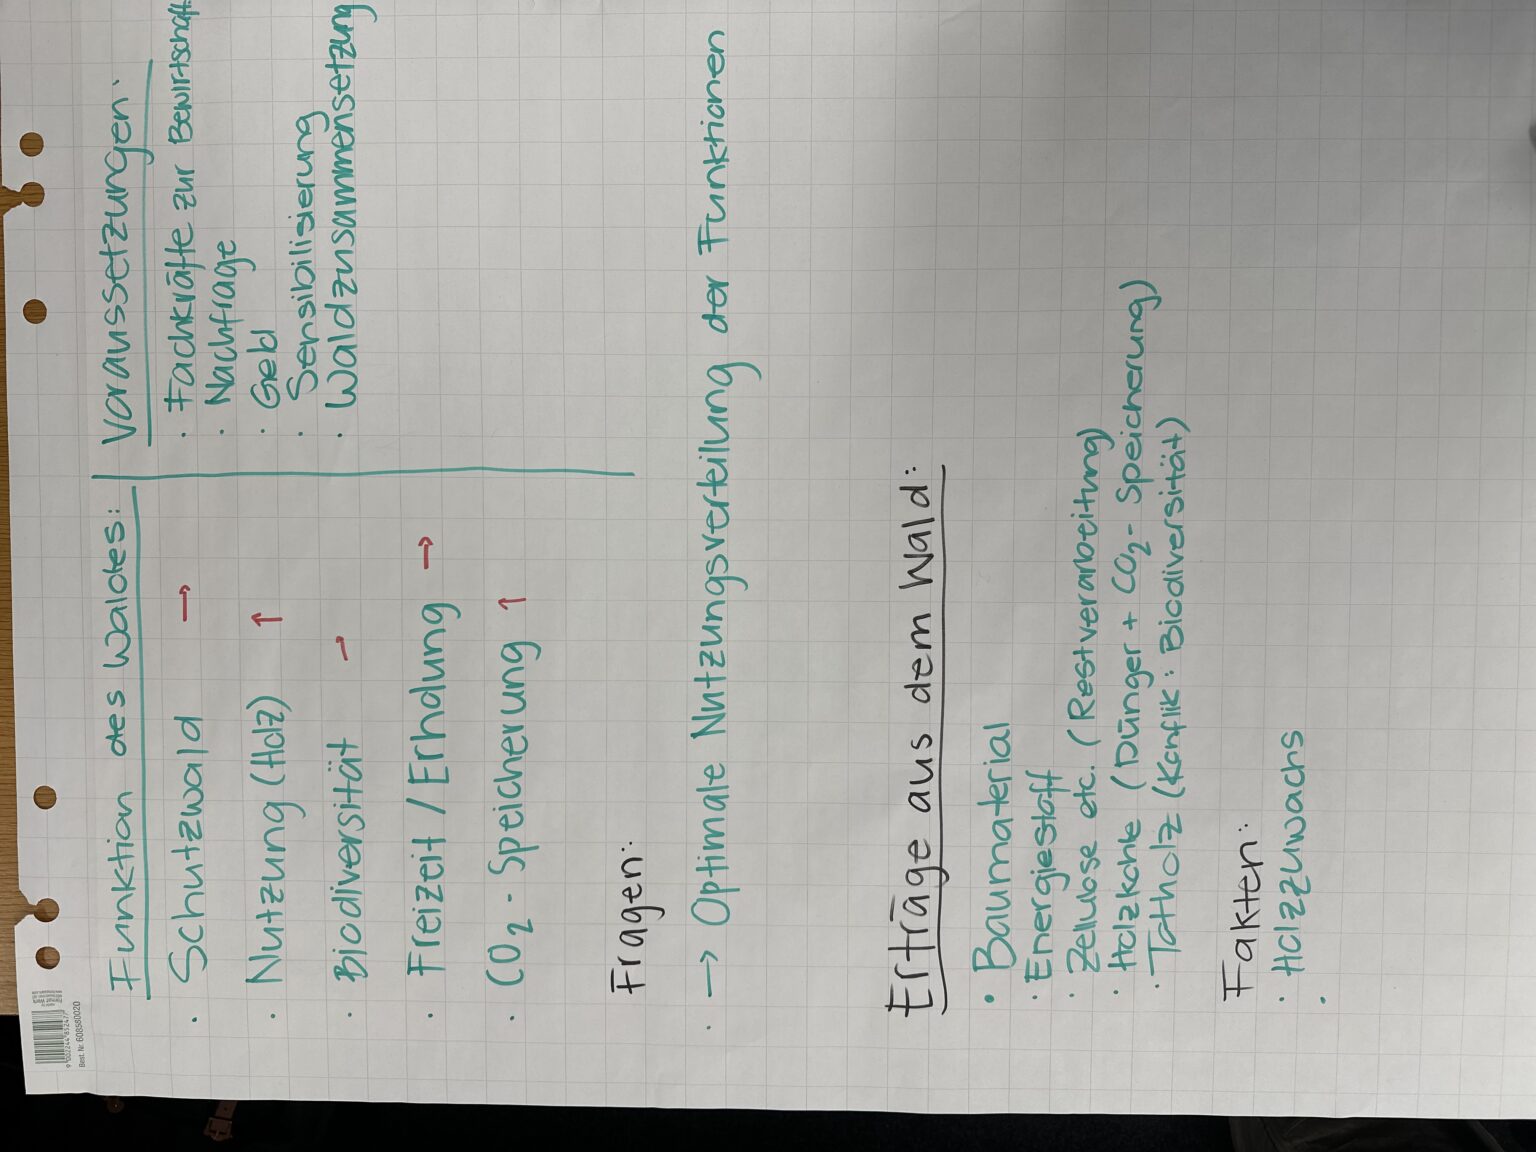 Funktion des Waldes:
· Schutzwald →
· Nutzung (Holz) ↑
· Biodiversität
· Freizeit / Erholung →
· CO₂-Speicherung ↑
Voraussetzungen:
· Fachkräfte zur Bewirtschaft
· Nachfrage
· Geld
· Sensibilisierung
· Waldzusammensetzung
Fragen:
· → Optimale Nutzungsverteilung der Funktionen
Erträge aus dem Wald:
· Baumaterial
· Energiestoff
· Zellulose etc. (Restverarbeitung)
· Holzkohle (Dünger + CO₂-Speicherung)
· Totholz (Konflik: Biodiversität)
Fakten:
· Holzzuwachs
·
9 002244 852477
Best. Nr. 608580020